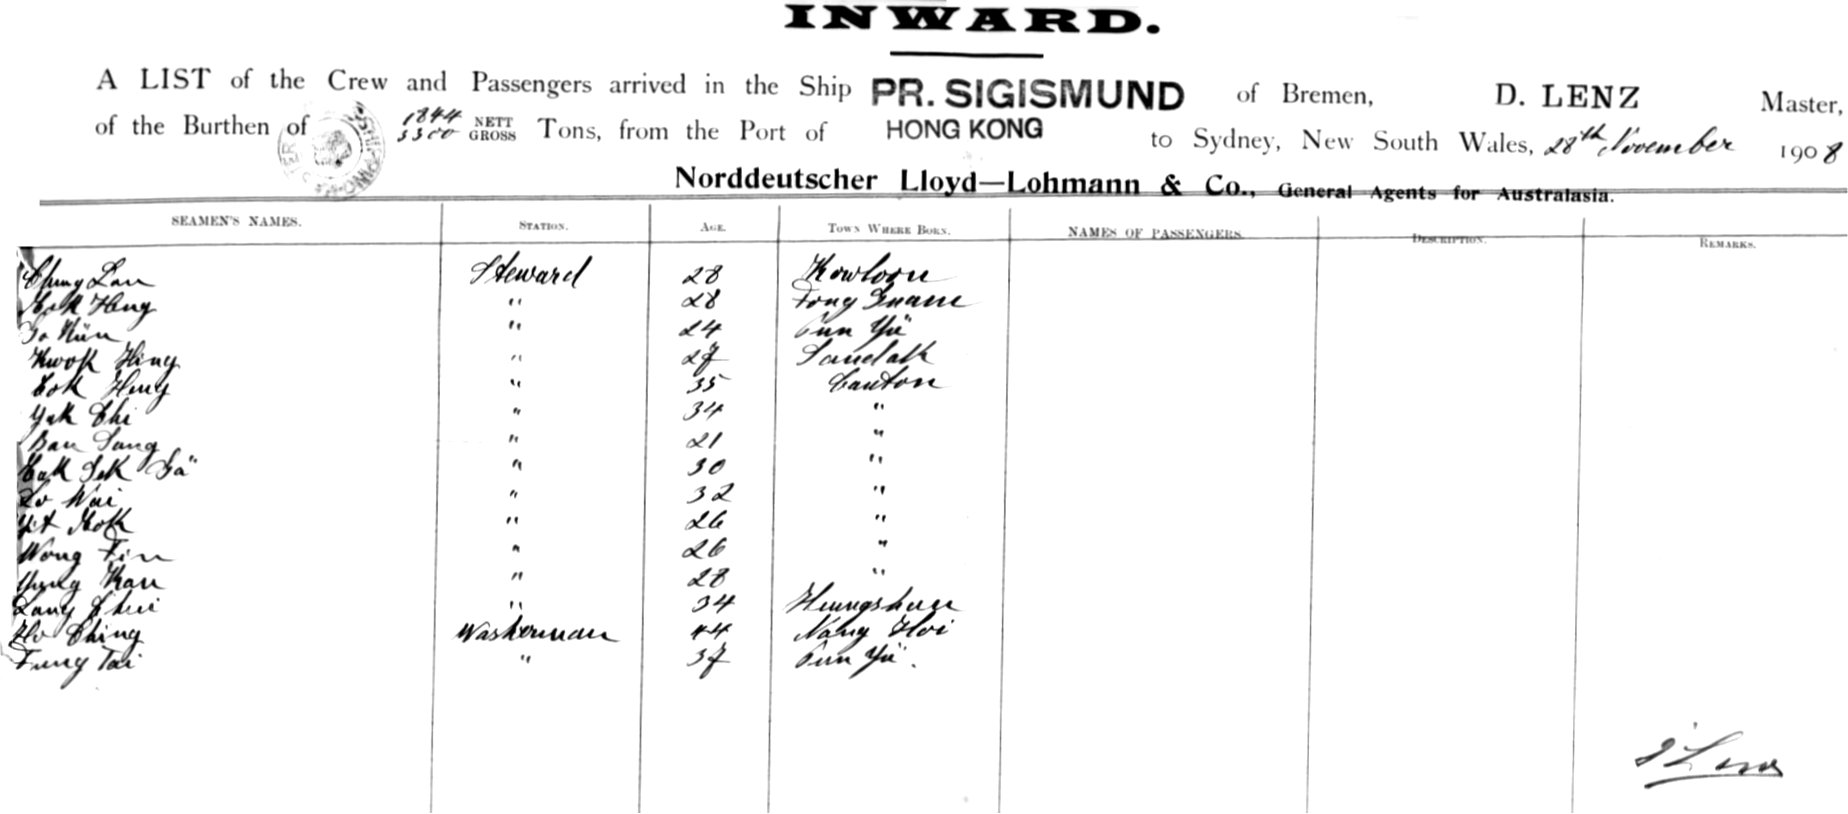 INWARD.
A LIST of the Crew and Passengers arrived in the Ship PR. SIGISMUND of Bremen, D. LENZ Master,
of the Burthen of 1844 NETT 3300 GROSS Tons, from the Port of HONG KONG to Sydney, New South Wales, 28th November 1908
Norddeutscher Lloyd—Lohmann & Co., General Agents for Australasia.
SEAMEN'S NAMES. STATION. AGE. TOWN WHERE BORN. NAMES OF PASSENGERS. DESCRIPTION. REMARKS.
Chung Lau Steward 28 Kowloon
Heng " 28 Tong
" 24 Pun Yü
Kwok Hing " 27
Hing " 35 Canton
Yuk Chi " 34 "
Bau Sang " 21 "
" 30 "
Lo Wai " 32 "
" 26 "
Wong Fin " 26 "
Yung Kau " 28 "
" 34 Heungshan
Ho Ching Washerman 44 Nang Hoi
Fung Tai " 37 Pun Yü.
D Lenz